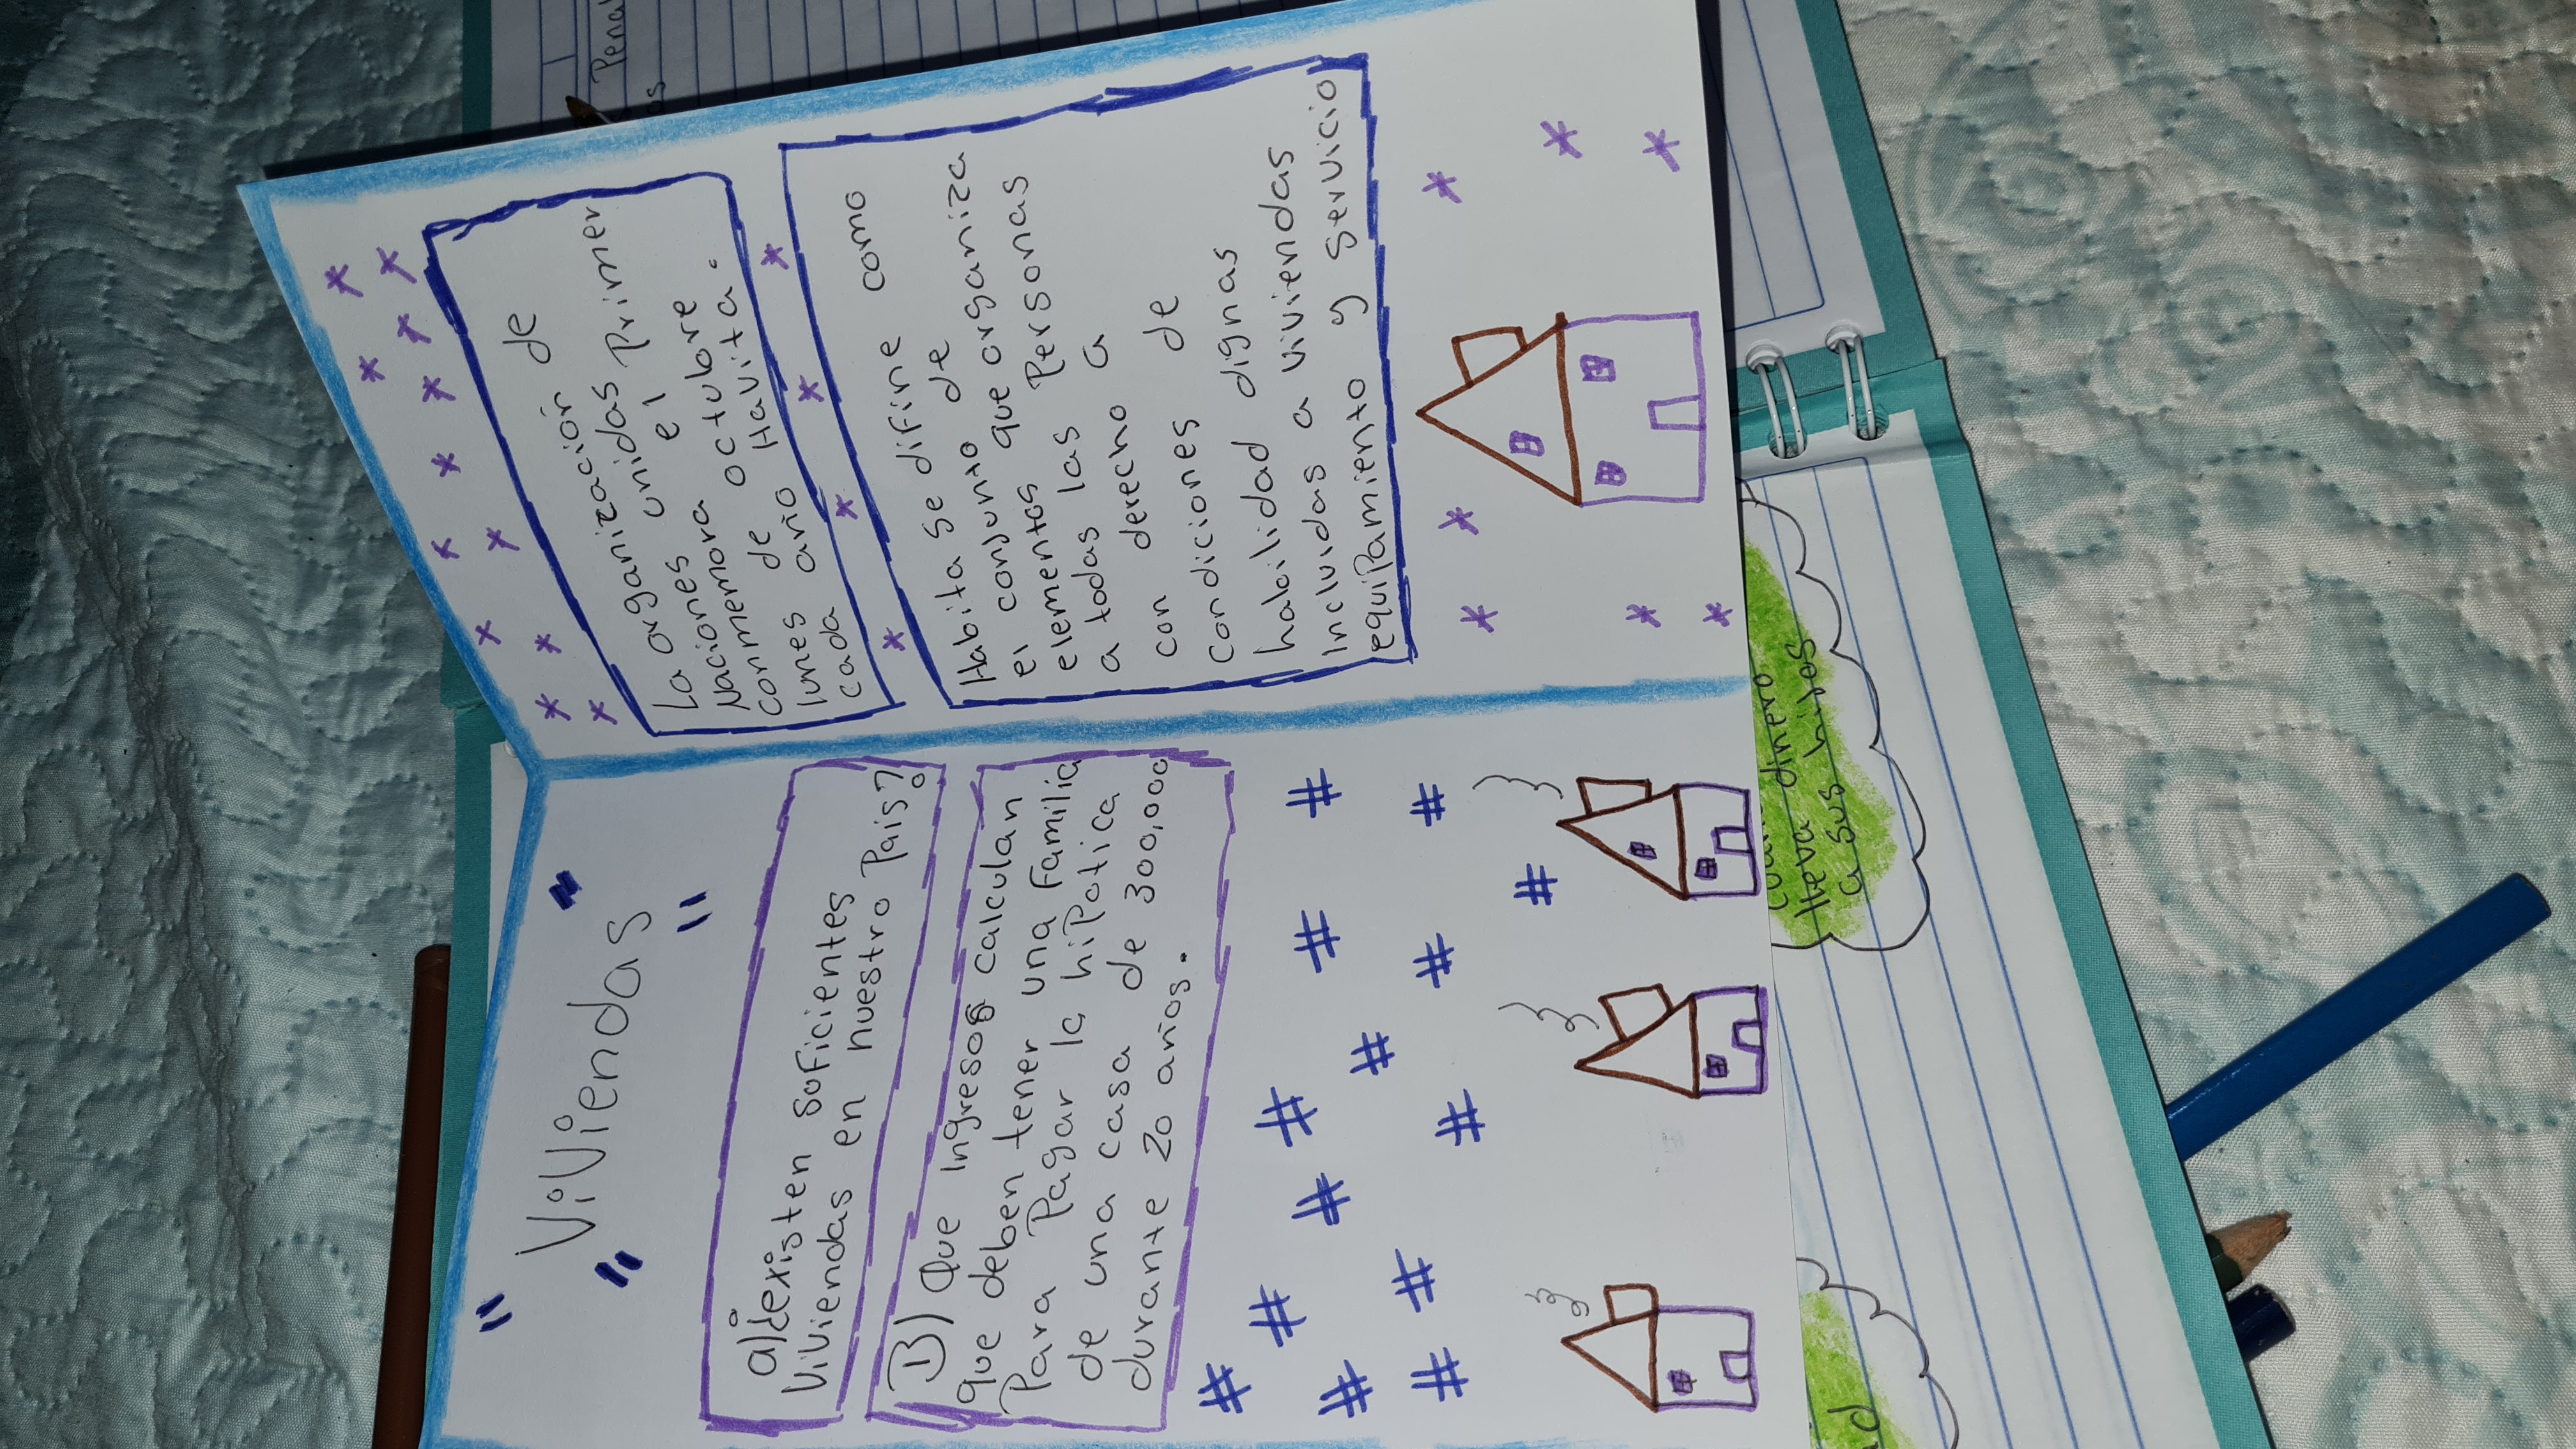 " Viviendas "
" "
a)¿existen suficientes
Viviendas en nuestro Pais?
B) Que ingresos calculan
que deben tener una familia
Para Pagar la hiPotica
de una casa de 300,000
durante 20 años.
La organización de
Naciones unidas Primer
conmemora el
lunes de octubre
cada año Havita.
Habita se difine como
el conjunto de
elementos que organiza
a todas las Personas
con derecho a
condiciones de
habilidad dignas
Incluidas a viviendas
equiPamiento y Servicio
Penal
os
dinero
lleva
a sus hijos